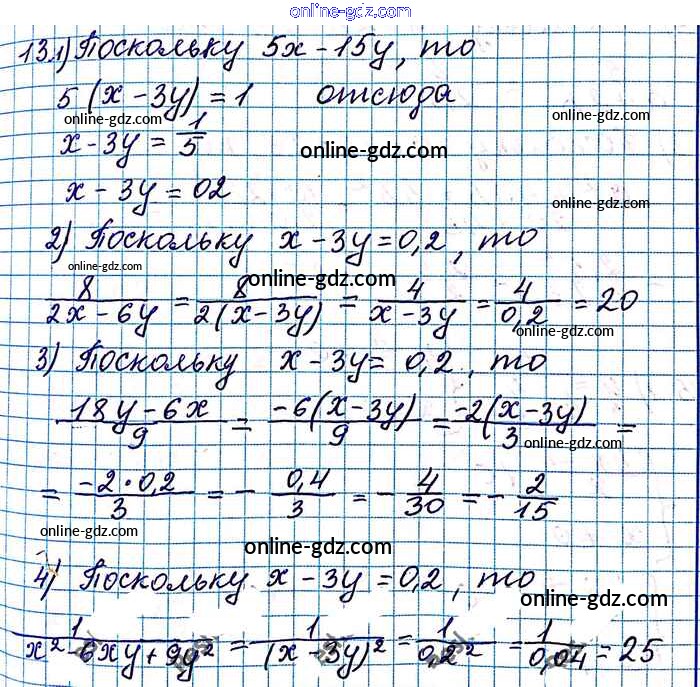 online-gdz.com
13.1) Поскольку 5x - 15y, то
5 (x - 3y) = 1 отсюда
online-gdz.com online-gdz.com
x - 3y = 1/5
online-gdz.com
x - 3y = 02
online-gdz.com
2) Поскольку x - 3y = 0,2, то
online-gdz.com
online-gdz.com
8/(2x - 6y) = 8/(2(x - 3y)) = 4/(x - 3y) = 4/0,2 = 20
online-gdz.com
3) Поскольку x - 3y = 0,2, то
online-gdz.com
(18y - 6x)/9 = (-6(x - 3y))/9 = (-2(x - 3y))/3 =
online-gdz.com
= (-2 · 0,2)/3 = - 0,4/3 = - 4/30 = - 2/15
online-gdz.com
online-gdz.com
4) Поскольку x - 3y = 0,2, то
online-gdz.com
1/(x² - 6xy + 9y²) = 1/(x - 3y)² = 1/0,2² = 1/0,04 = 25